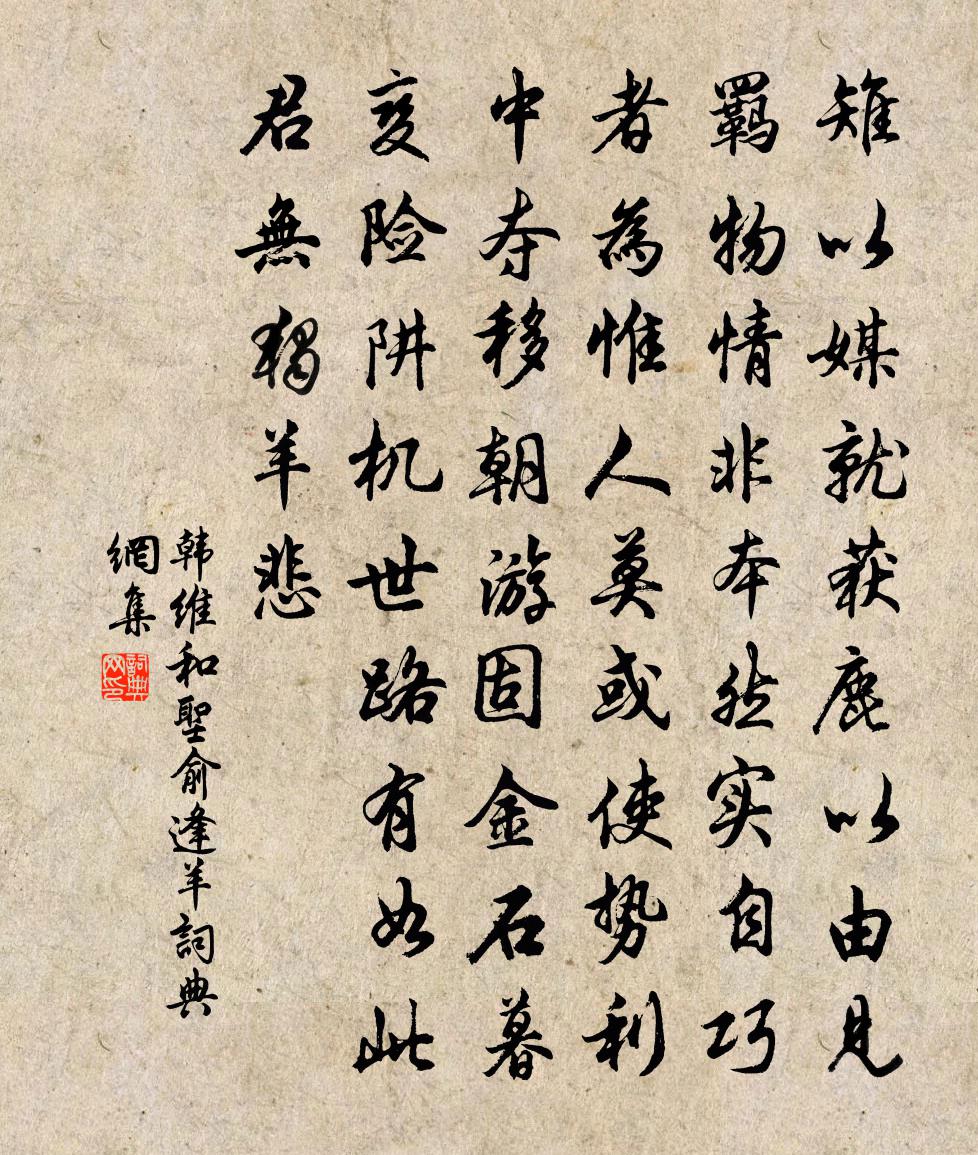 雉以媒就获鹿以由見
羁物情非本然实自巧
者為惟人莫或使势利
中夺移朝游固金石暮
变险阱机世路有如此
君無独羊悲
韩维和聖俞逢羊詞典
網集
詞典
网印